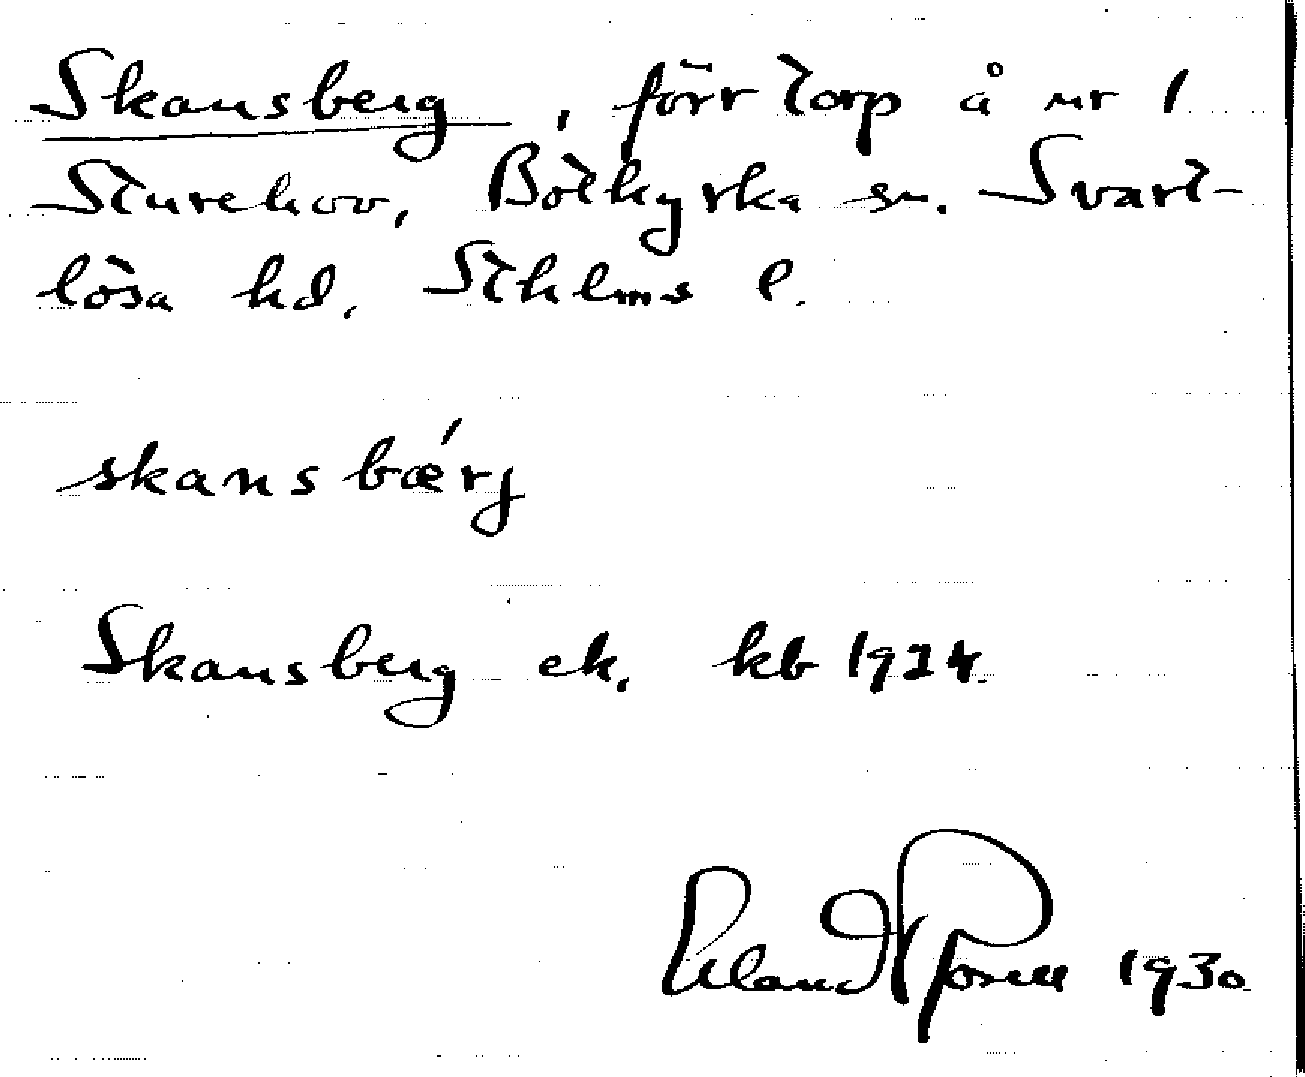 Skansberg, förr torp å nr 1
Sturehov, Botkyrka sn. Svart-
lösa hd. Sthlms l.
skansbæ´rj
Skansberg ek. kb 1924.
Erland Rosell 1930